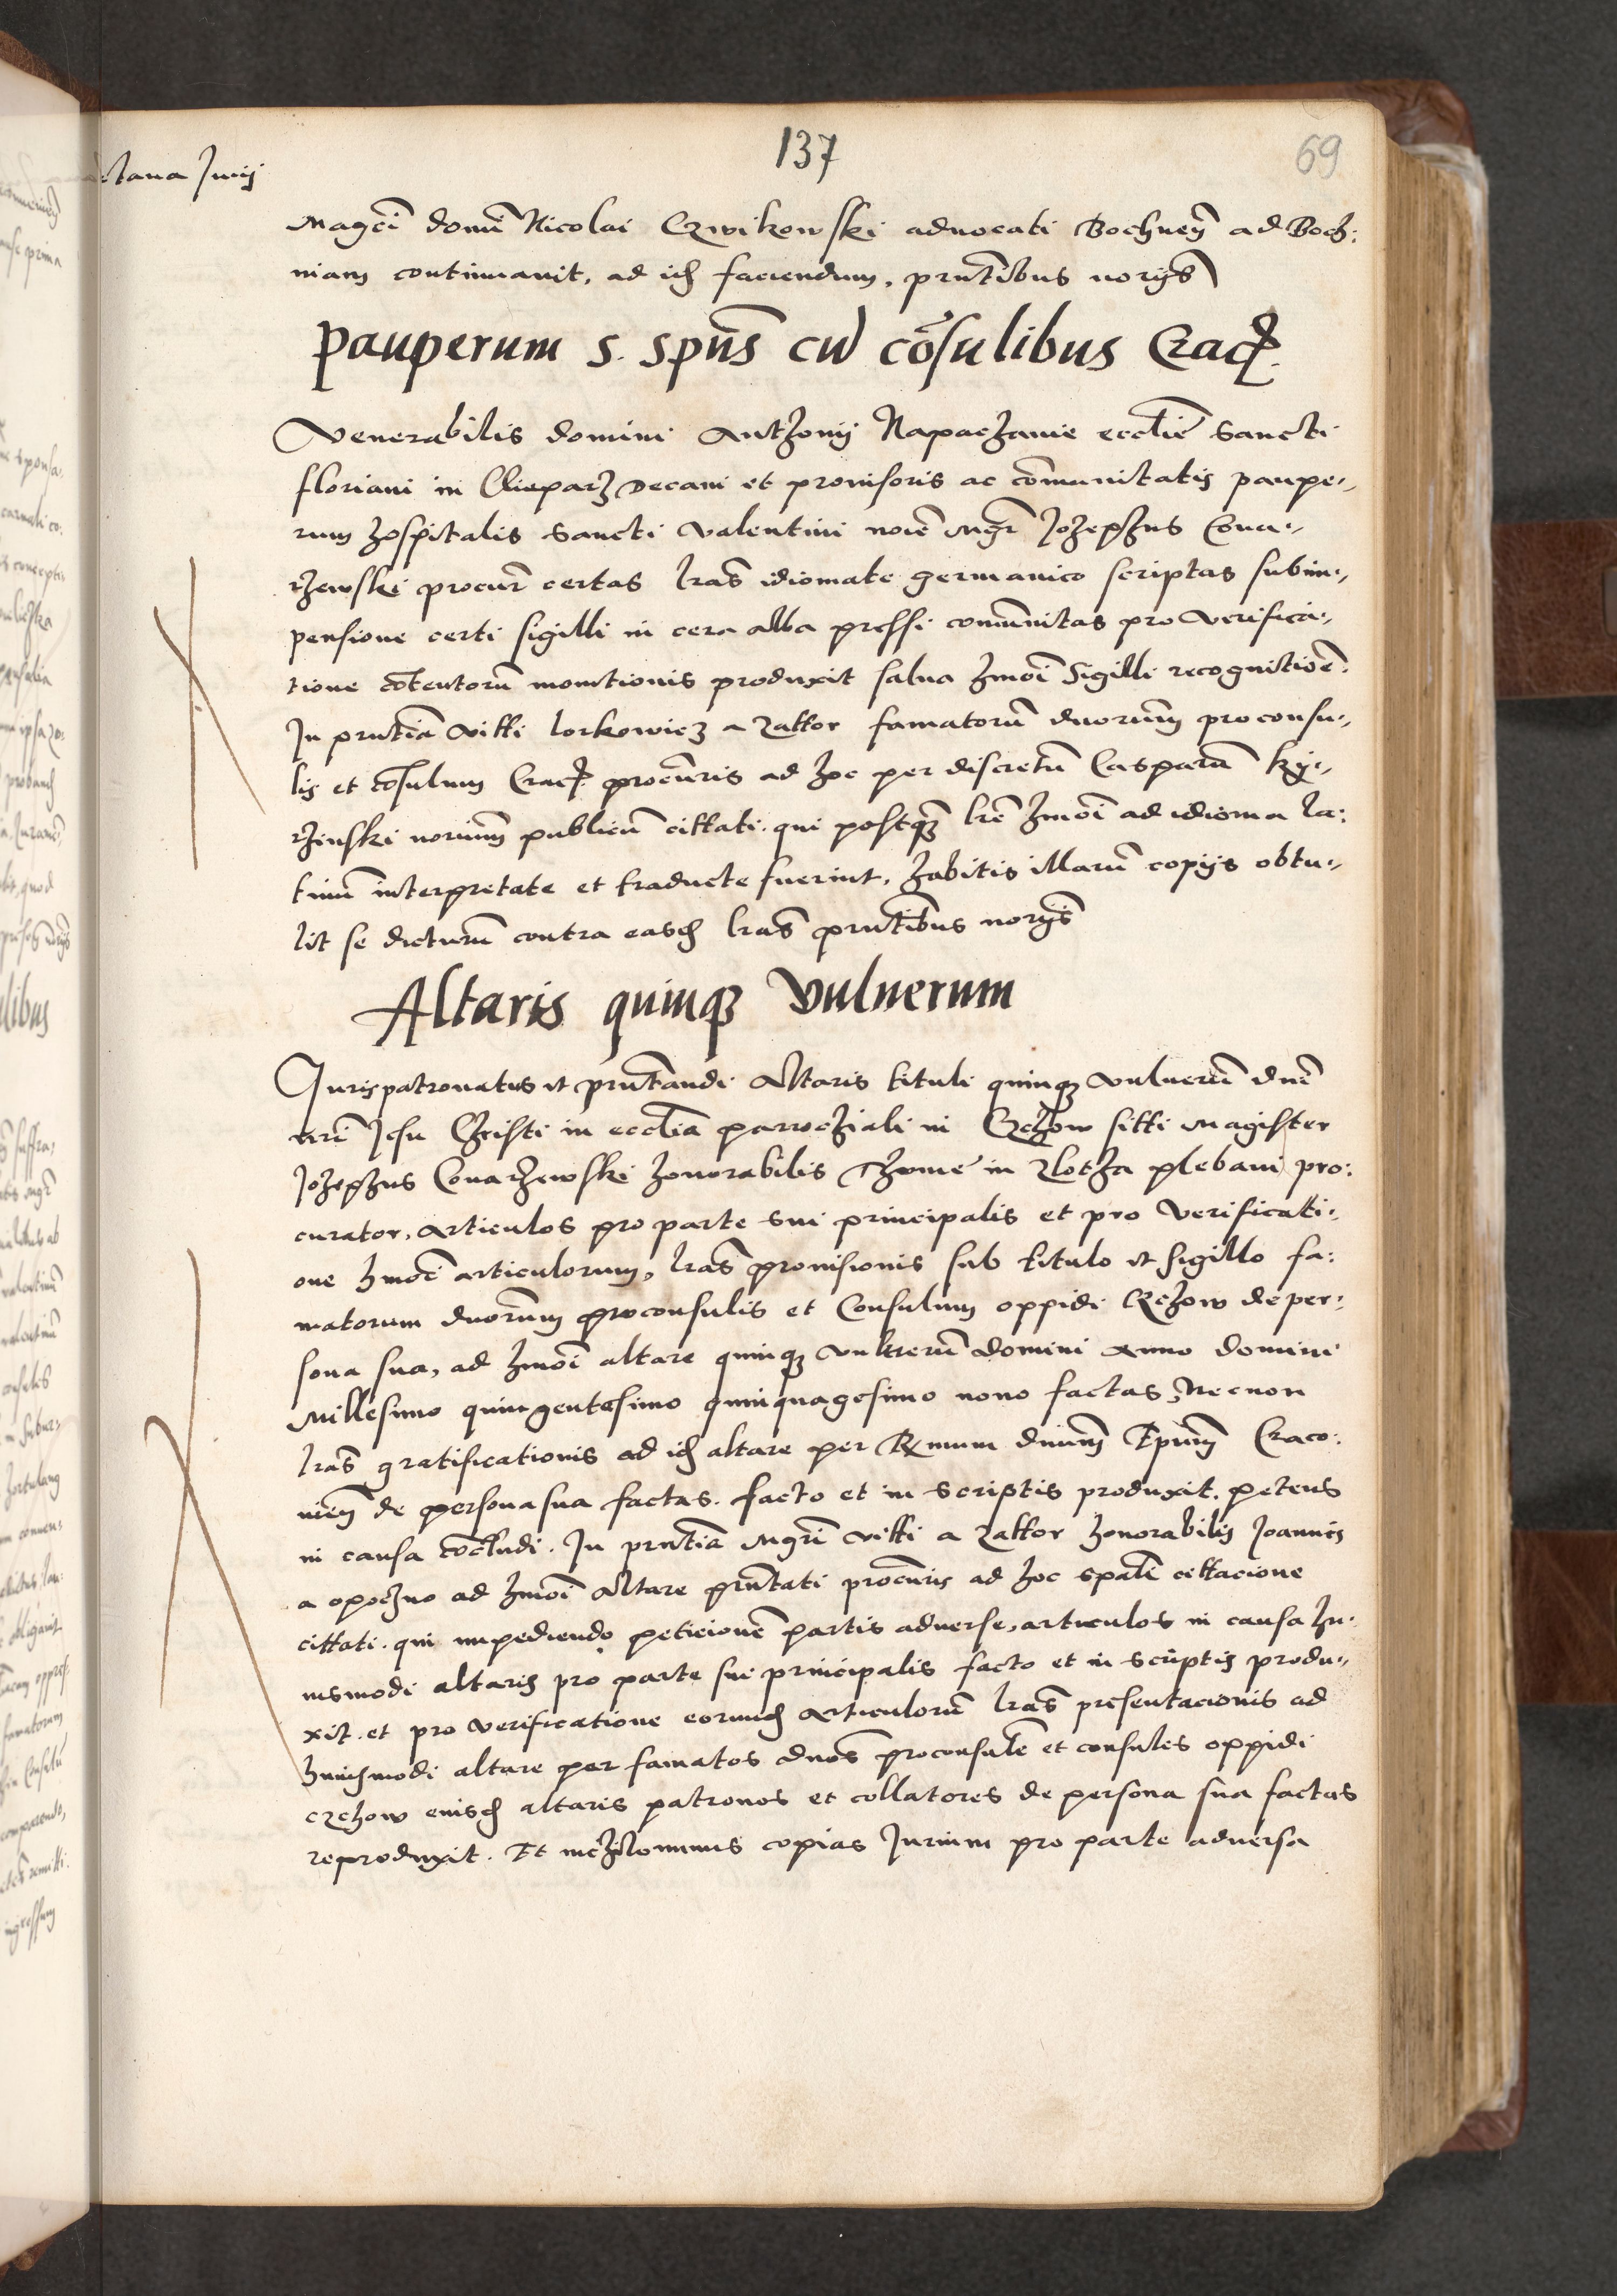 137
69
Junij
Magci domi Nicolai Czwikowski aduocati Bochnen ad Boch:
niam continuauit, ad id faciendum, pntibus norijs
Pauperum S. Spūs cū cōsulibus Crac
Venerabilis domini Anthonij Napachanie ecclie Sancti
floriani in Clieparz Decani et prouisoris ac cōmunitatis paupe„
rum hospitalis Sancti Valentini noie Mgr Josephus Cona„
rzewski procur certas lras idiomate germanico scriptas sub im„
pensione certi sigilli in cera alba pressi comunitas pro verifica„
tione cōtentorū monitionis produxit salua hmoi Sigilli recognitiōe.
In pntia Vitti lorkowicz a Zattor famatorū dnorum proconsu„
lis et cōsulum Crac procuris ad hoc per discretū Casparū Ky„
rzinski norium publicū cittati. qui postq lre hmoi ad idioma la:
tinū interpretate et traducte fuerint, habitis illarū copijs obtu„
lit se dicturū contra easd lras pntibus norijs
Altaris quinq Vulnerum
Jurispatronatus et pntandi Altaris tituli quinq vulnerū dni
nri Jesu Christi in ecclia parrochiali in Czchow sitti Magister
Josephus Conarzewski honorabilis Thome in Zlotha plebani pro:
curator, articulos pro parte sui principalis et pro verificati:
one hmoi articulorum, lras prouisionis sub titulo et sigillo fa:
matorum dnorum proconsulis et Consulum oppidi Czchow de per:
sona sua, ad hmoi altare quinq vulnerū domini Anno domini
Millesimo quingentesimo quinquagesimo nono factas, Necnon
lras gratificationis ad id altare per Rmum dnum Epum Craco:
nien de persona sua factas. facto et in scriptis produxit. petens
in causa cōcludi. In pntia Mgri Vitti a Zattor honorabilis Joannis
a opoczno ad hmoi Altare pntati procuris ad hoc spali cittacione
cittati. qui impediendo peticionē partis aduerse, articulos in causa hu:
iusmodi altaris pro parte sui principalis facto et in scriptis produ„
xit. et pro verificatione eorund Articulorū lras presentacionis ad
huiusmodi altare per famatos dnos proconsulē et consules oppidi
czchow eiusd altaris patronos et collatores de persona sua factas
reproduxit. Et nichilominus copias Jurium pro parte aduersa